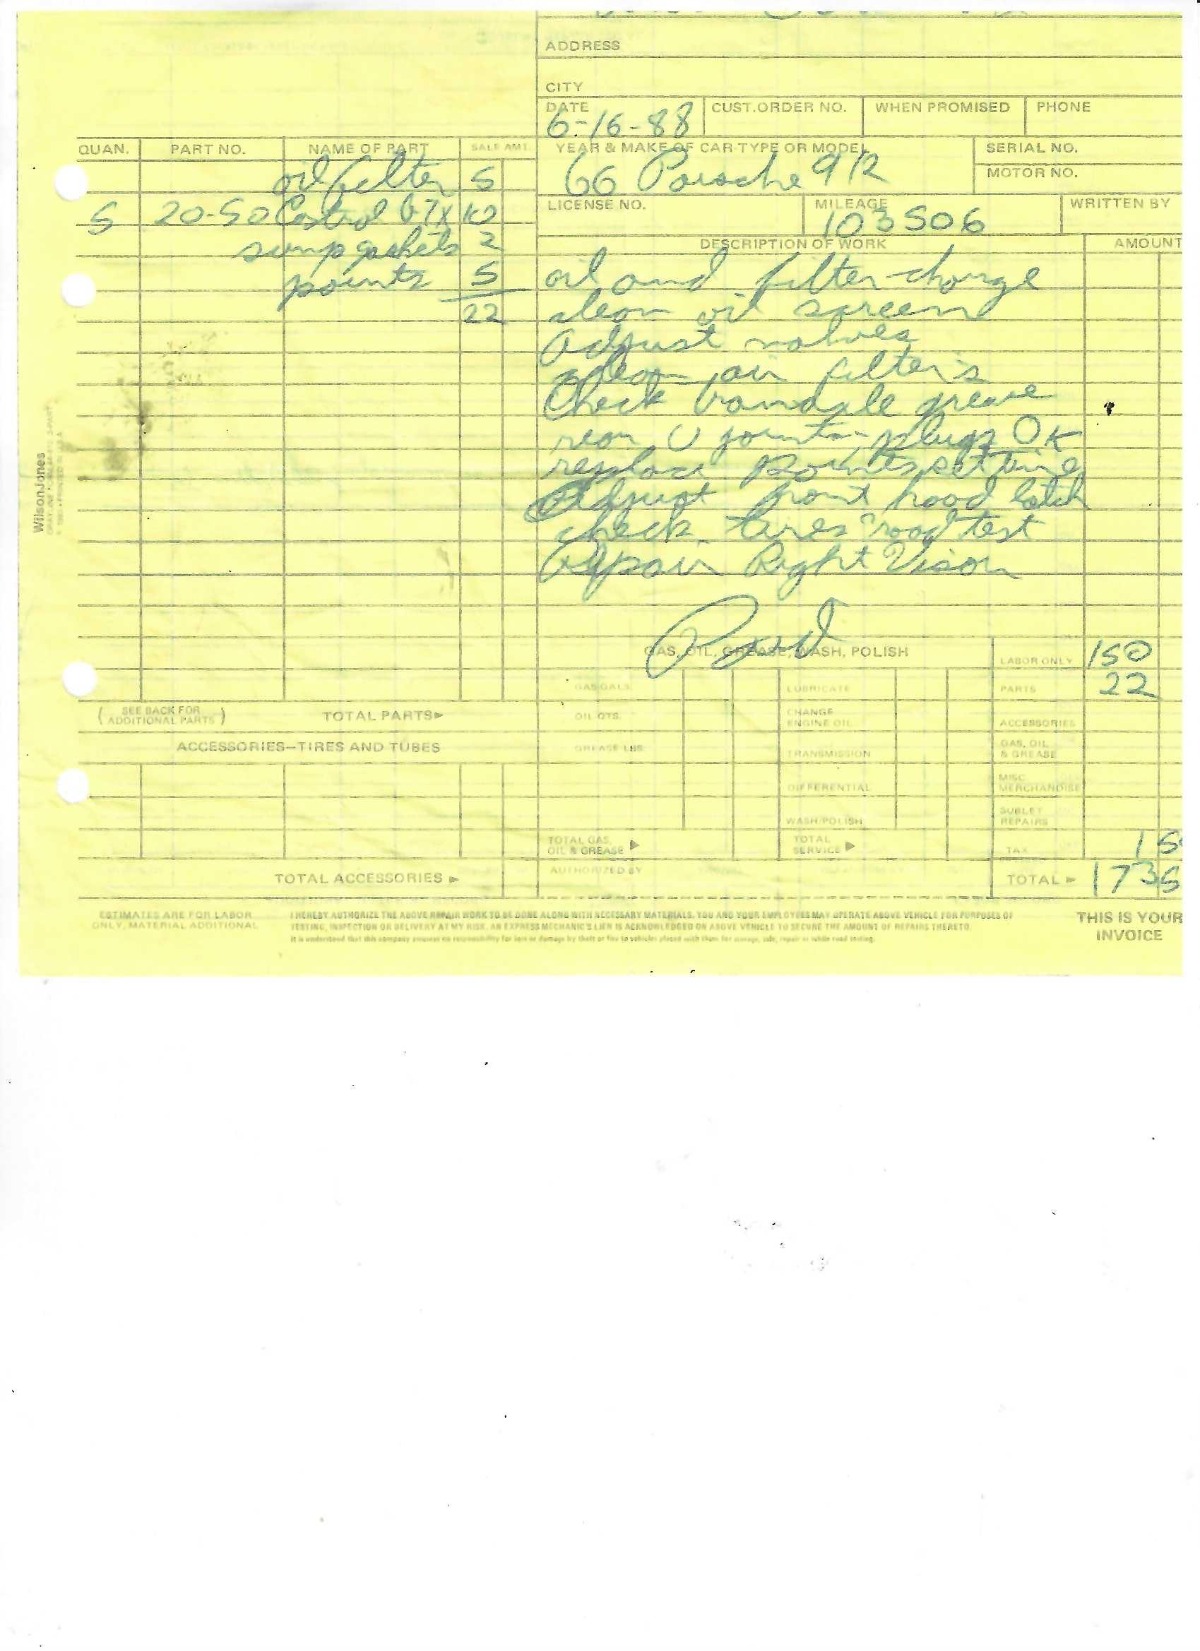 ADDRESS
CITY
DATE CUST.ORDER NO. WHEN PROMISED PHONE
6-16-88
QUAN. PART NO. NAME OF PART SALE AMT.
YEAR & MAKE OF CAR-TYPE OR MODEL SERIAL NO.
66 Porsche 912
MOTOR NO.
oil filter 5
LICENSE NO. MILEAGE WRITTEN BY
103506
5 20-50 Castrol GTX 10
sump gaskets 2
points 5
22
DESCRIPTION OF WORK AMOUNT
oil and filter change
clean oil screen
Adjust valves
clean air filter's
Check transaxle grease
rear U joints plugs OK
replace points set time
Adjust front hood latch
check tires "road" test
Repair Right Visor
Paid
GAS, OIL, GREASE, WASH, POLISH
LABOR ONLY 150
GAS GALS. LUBRICATE PARTS 22
( SEE BACK FOR ADDITIONAL PARTS ) TOTAL PARTS
OIL QTS. CHANGE ENGINE OIL ACCESSORIES
ACCESSORIES—TIRES AND TUBES
GREASE LBS. TRANSMISSION GAS, OIL & GREASE
DIFFERENTIAL MISC. MERCHANDISE
WASH/POLISH SUBLET REPAIRS
TOTAL GAS, OIL & GREASE TOTAL SERVICE TAX 1 5
TOTAL ACCESSORIES AUTHORIZED BY TOTAL 173 5
ESTIMATES ARE FOR LABOR
ONLY, MATERIAL ADDITIONAL
I HEREBY AUTHORIZE THE ABOVE REPAIR WORK TO BE DONE ALONG WITH NECESSARY MATERIALS. YOU AND YOUR EMPLOYEES MAY OPERATE ABOVE VEHICLE FOR PURPOSES OF
TESTING, INSPECTION OR DELIVERY AT MY RISK. AN EXPRESS MECHANIC'S LIEN IS ACKNOWLEDGED ON ABOVE VEHICLE TO SECURE THE AMOUNT OF REPAIRS THERETO.
It is understood that this company assumes no responsibility for loss or damage by theft or fire to vehicles placed with them for storage, sale, repair or while road testing.
THIS IS YOUR
INVOICE
WilsonJones